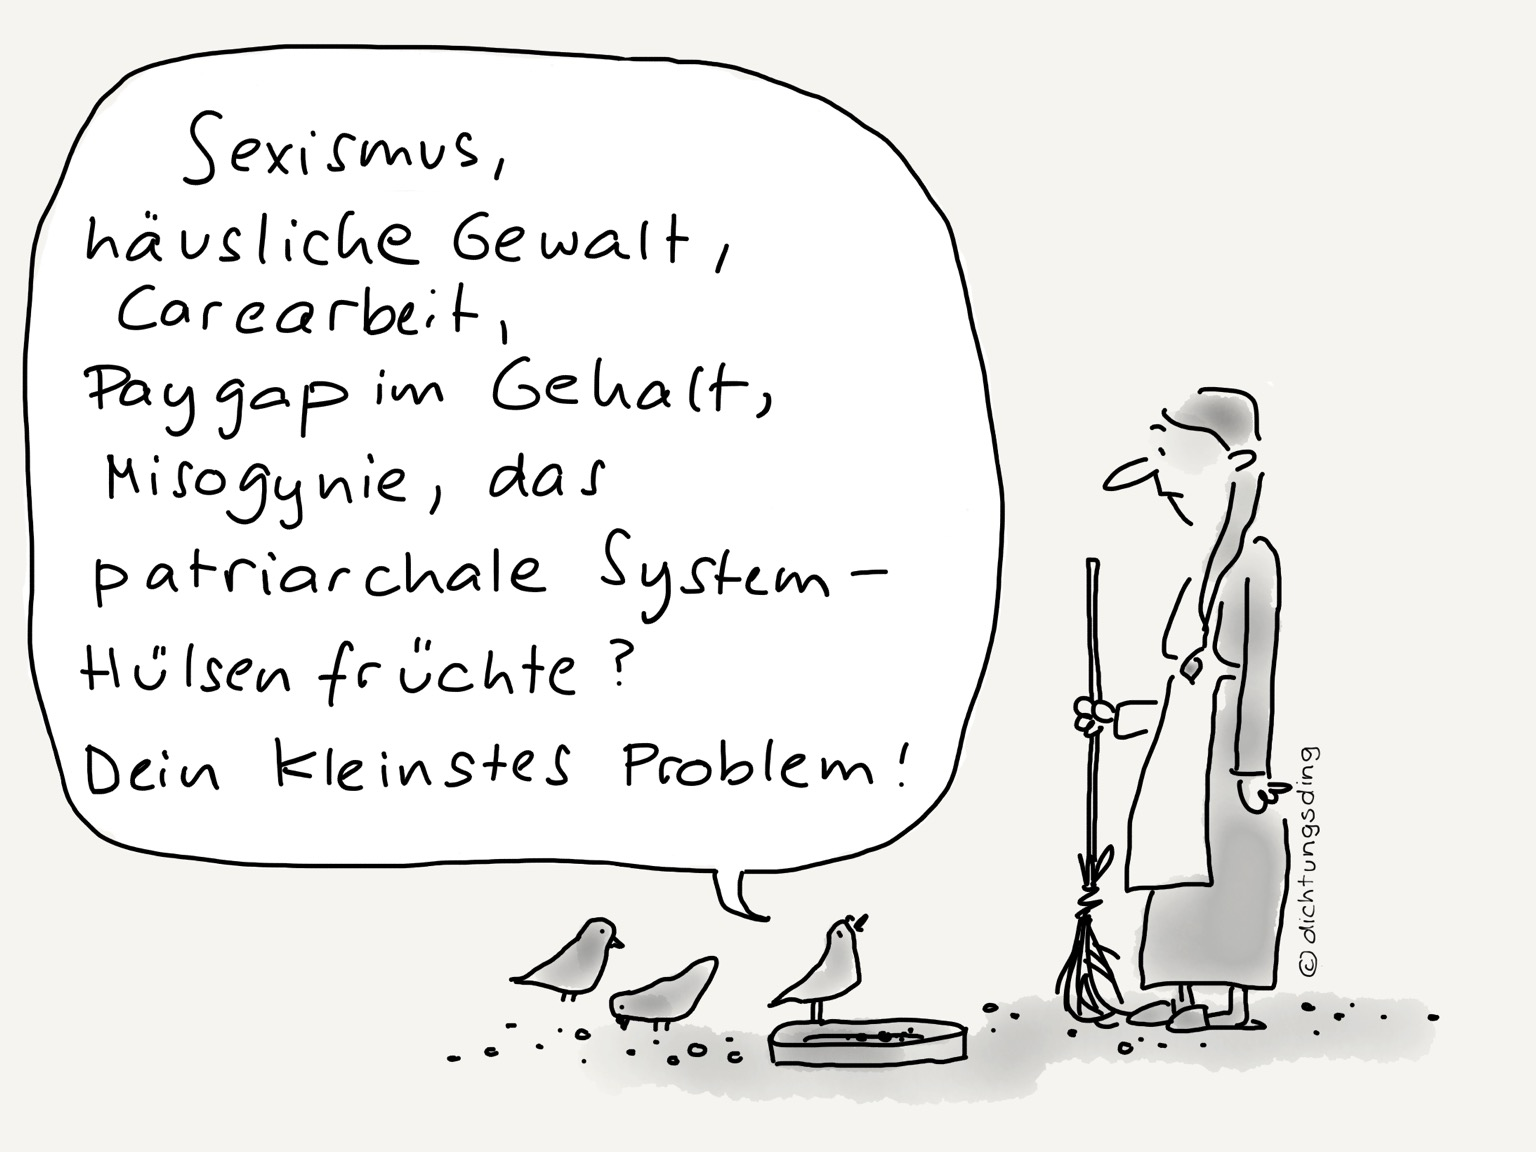 Sexismus,
häusliche Gewalt,
Carearbeit,
Paygap im Gehalt,
Misogynie, das
patriarchale System –
Hülsenfrüchte?
Dein kleinstes Problem!
© dichtungsding